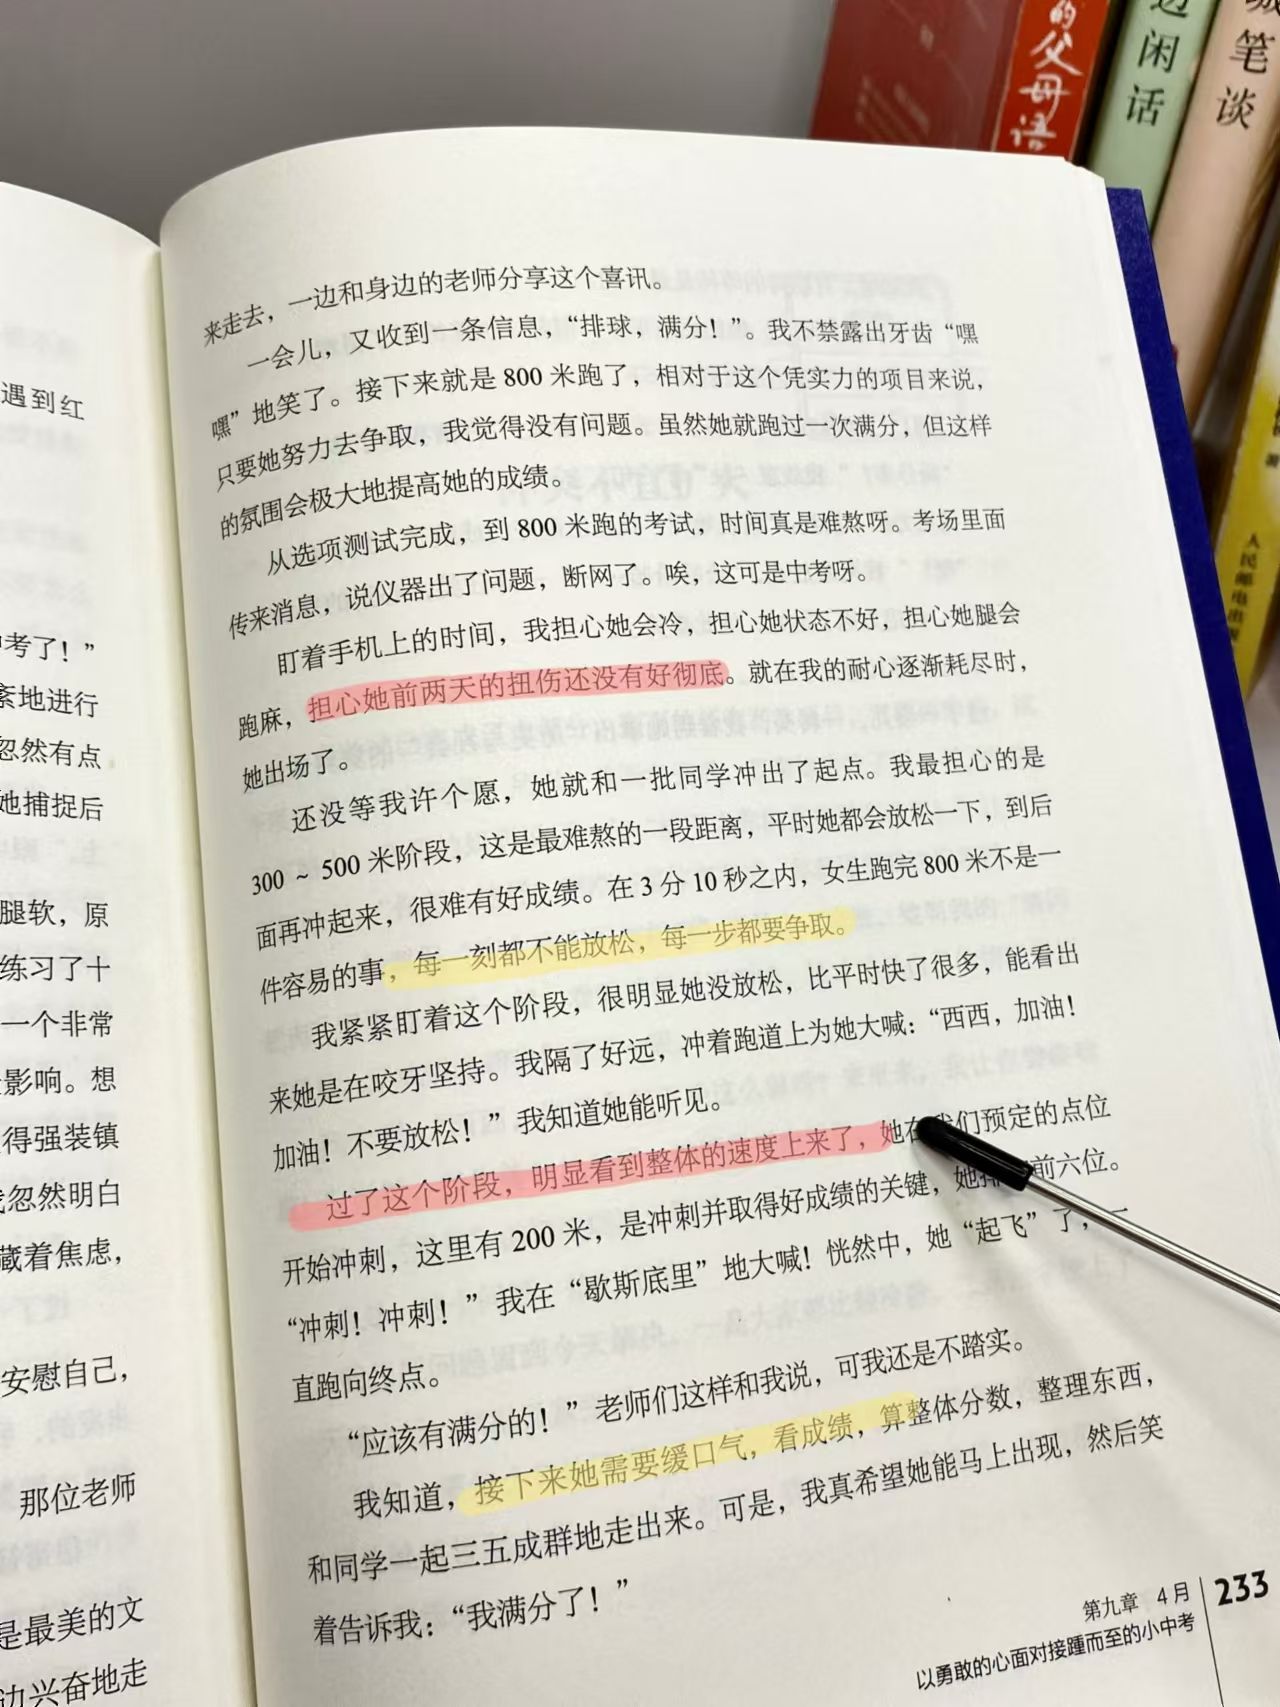 的父母语
边闲话
城笔谈
人民邮电出版
著
遇到红
中考了！”
紊地进行
忽然有点
她捕捉后
腿软，原
练习了十
一个非常
影响。想
得强装镇
忽然明白
藏着焦虑，
安慰自己，
那位老师
是最美的文
边兴奋地走
来走去，一边和身边的老师分享这个喜讯。
一会儿，又收到一条信息，“排球，满分！”。我不禁露出牙齿“嘿
嘿”地笑了。接下来就是 800 米跑了，相对于这个凭实力的项目来说，
只要她努力去争取，我觉得没有问题。虽然她就跑过一次满分，但这样
的氛围会极大地提高她的成绩。
从选项测试完成，到 800 米跑的考试，时间真是难熬呀。考场里面
传来消息，说仪器出了问题，断网了。唉，这可是中考呀。
盯着手机上的时间，我担心她会冷，担心她状态不好，担心她腿会
跑麻，担心她前两天的扭伤还没有好彻底。就在我的耐心逐渐耗尽时，
她出场了。
还没等我许个愿，她就和一批同学冲出了起点。我最担心的是
300 ~ 500 米阶段，这是最难熬的一段距离，平时她都会放松一下，到后
面再冲起来，很难有好成绩。在 3 分 10 秒之内，女生跑完 800 米不是一
件容易的事，每一刻都不能放松，每一步都要争取。
我紧紧盯着这个阶段，很明显她没放松，比平时快了很多，能看出
来她是在咬牙坚持。我隔了好远，冲着跑道上为她大喊：“西西，加油！
加油！不要放松！”我知道她能听见。
过了这个阶段，明显看到整体的速度上来了，她在我们预定的点位
开始冲刺，这里有 200 米，是冲刺并取得好成绩的关键，她排前六位。
“冲刺！冲刺！”我在“歇斯底里”地大喊！恍然中，她“起飞”了，一
直跑向终点。
“应该有满分的！”老师们这样和我说，可我还是不踏实。
我知道，接下来她需要缓口气，看成绩，算整体分数，整理东西，
和同学一起三五成群地走出来。可是，我真希望她能马上出现，然后笑
着告诉我：“我满分了！”
第九章 4月
以勇敢的心面对接踵而至的小中考
233